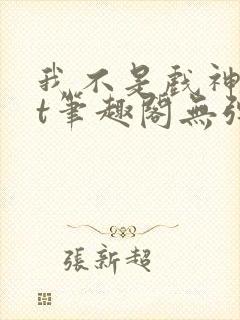 我不是戲神
t筆趣閣無張
張新超